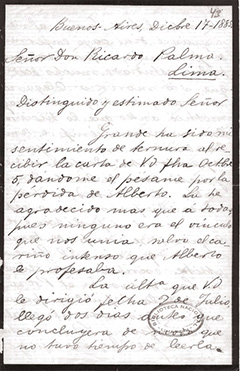 43
Buenos-Aires, Dicbre 17-188
Señor Don Ricardo Palma
Lima.
Distinguido y estimado Señor
Grande ha sido mi
sentimiento de ternura al re-
cibir la carta de Vd fha Octbre
5, dándome el pesame por la
pérdida de Alberto. La he
agradecido mas que a todas,
pues ninguno era el vínculo
que nos unia, salvo el ca-
riño intenso que Alberto
le profesaba.
La ultª que Vd.
le dirigió fecha 2 de Julio,
llegó dos dias antes que
concluyera de que
no tuvo tiempo de leerla.
BIBLIOTECA NACIONAL